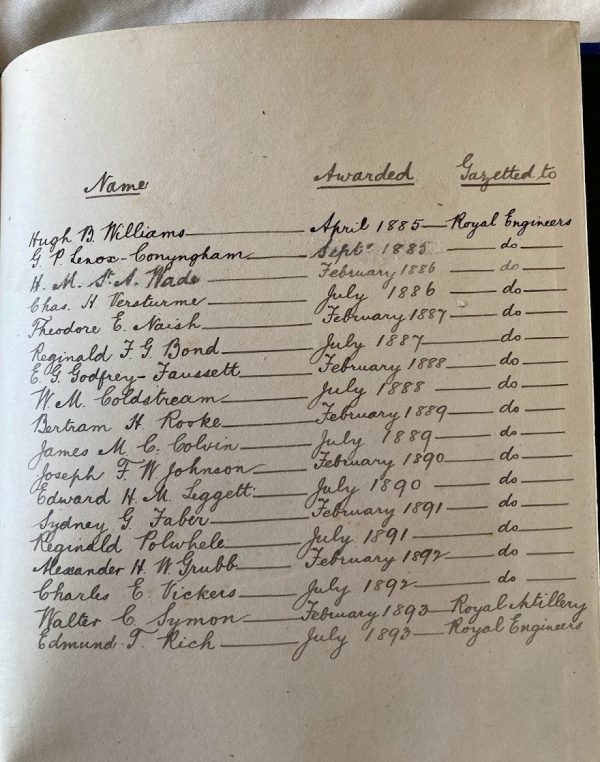 Name Awarded Gazetted to
Hugh B. Williams April 1885 Royal Engineers
G. P. Lenox-Conyngham Septr 1885 do
H. M. St. A. Wade February 1886 do
Chas. H. Versturme July 1886 do
Theodore E. Naish February 1887 do
Reginald F. G. Bond July 1887 do
E. G. Godfrey-Faussett February 1888 do
W. M. Coldstream July 1888 do
Bertram H. Rooke February 1889 do
James M. C. Colvin July 1889 do
Joseph F. W. Johnson February 1890 do
Edward H. M. Leggett July 1890 do
Sydney G. Faber February 1891 do
Reginald Polwhele July 1891 do
Alexander H. W. Grubb February 1892 do
Charles E. Vickers July 1892 do
Walter C. Symon February 1893 Royal Artillery
Edmund T. Rich July 1893 Royal Engineers